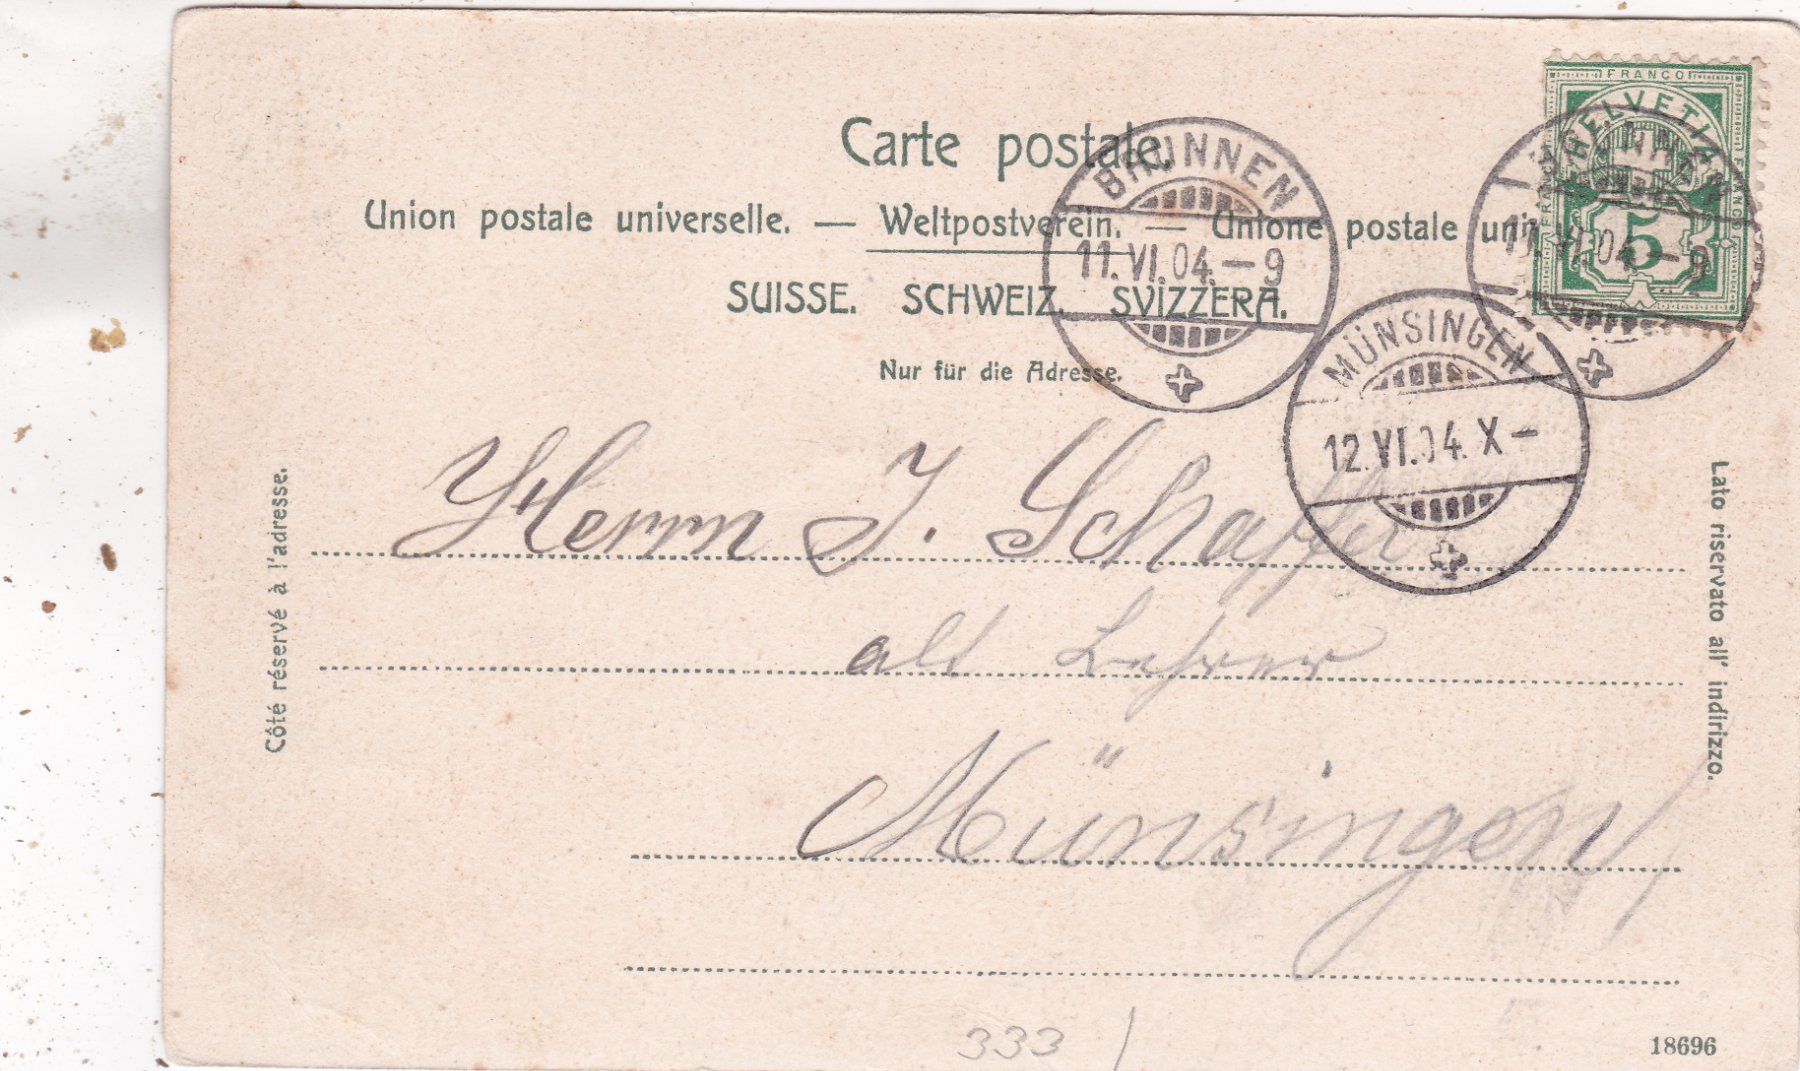 FRANCO
HELVETIA
FRANCO
FRANCO
5
Carte postale.
BRUNNEN
11.VI.04.–9
BRUNNEN
11.VI.04.–9
Union postale universelle. — Weltpostverein. — Unione postale uni
SUISSE. SCHWEIZ. SVIZZERA.
Nur für die Adresse.
MÜNSINGEN
12.VI.04.X–
Côté réservé à l'adresse.
Lato riservato all' indirizzo.
Herrn J. Schaffer
alt Lehrer
Münsingen
333
18696